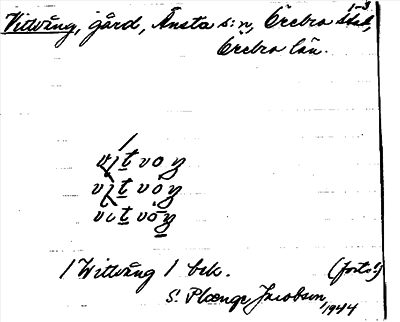 1-3
Vittvång, gård, Ånsta s:n, Örebro stad,
Örebro län.
vitvoŋ
vitvöŋ
vitvöŋ
/ Wittvång / bek. (forts.)
S. Plænge Jacobson, 1944